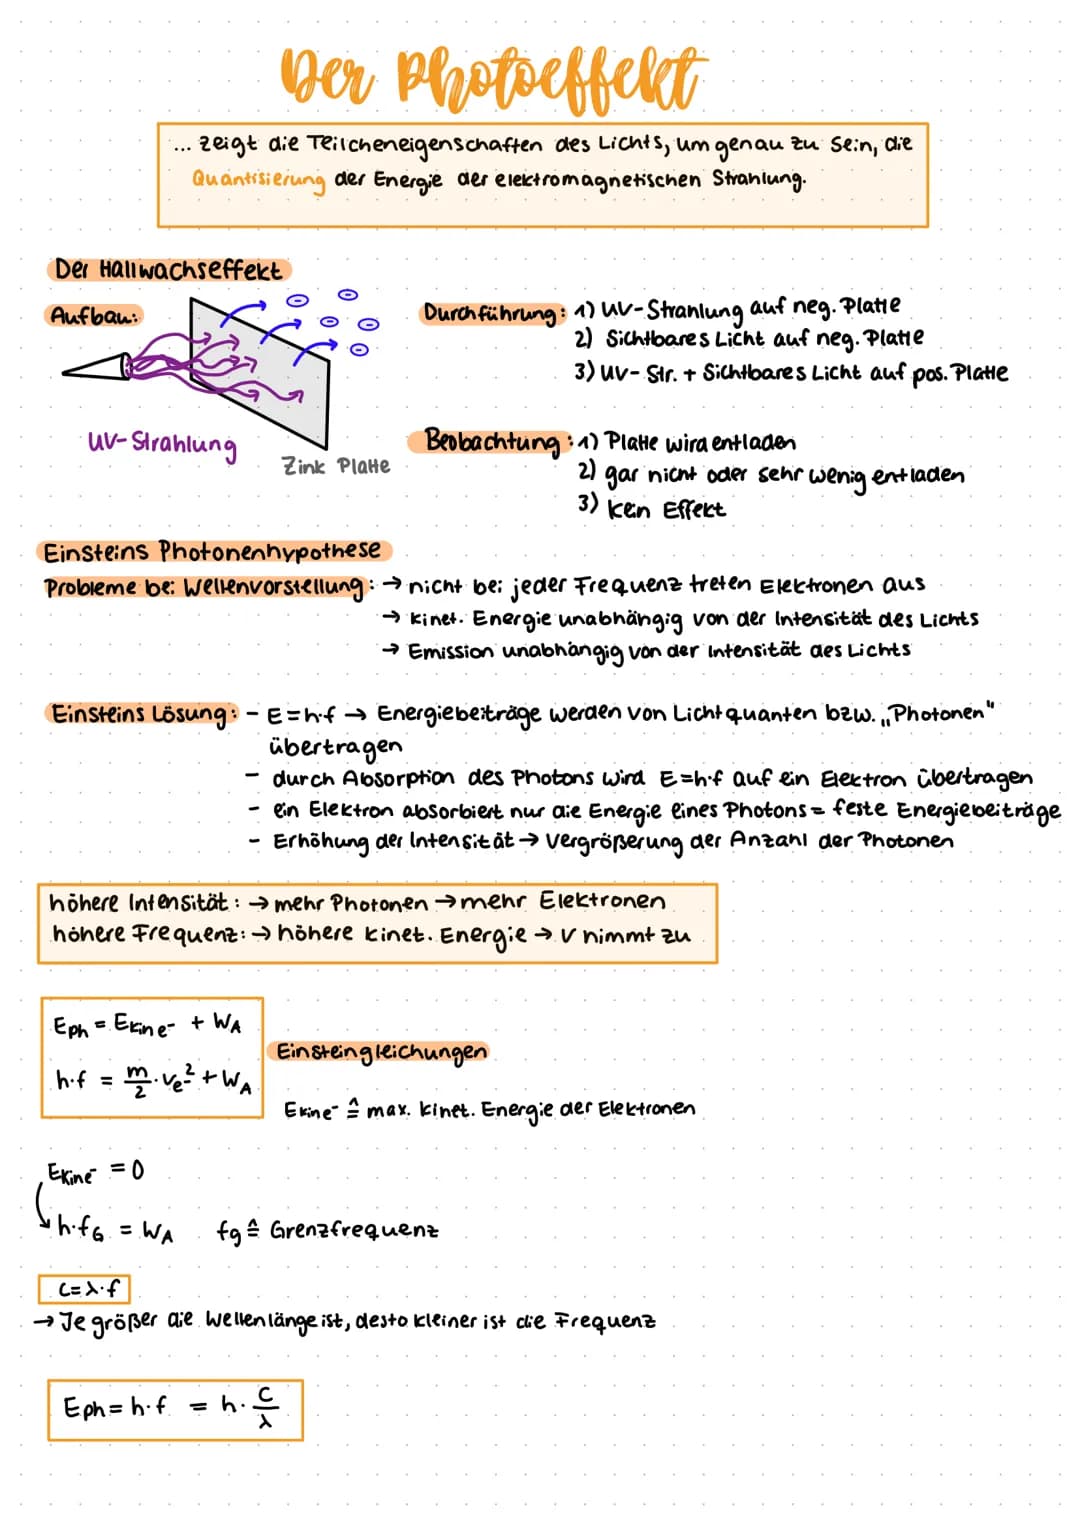 Der Photoeffekt
... zeigt die Teilcheneigenschaften des Lichts, um genau zu sein, die
Quantisierung der Energie der elektromagnetischen Strahlung.
Der Hallwachseffekt
Aufbau:
Durchführung: 1) UV-Strahlung auf neg. Platte
2) Sichtbares Licht auf neg. Platte
3) UV-Str. + Sichtbares Licht auf pos. Platte
UV-Strahlung
Zink Platte
Beobachtung: 1) Platte wird entladen
2) gar nicht oder sehr wenig entladen
3) kein Effekt
Einsteins Photonenhypothese
Probleme bei Wellenvorstellung: → nicht bei jeder Frequenz treten Elektronen aus
→ kinet. Energie unabhängig von der Intensität des Lichts
→ Emission unabhängig von der Intensität des Lichts
Einsteins Lösung: - E=h·f → Energiebeiträge werden von Lichtquanten bzw. „Photonen"
übertragen
- durch Absorption des Photons wird E=h·f auf ein Elektron übertragen
- ein Elektron absorbiert nur die Energie eines Photons = feste Energiebeiträge
- Erhöhung der Intensität → Vergrößerung der Anzahl der Photonen
höhere Intensität: → mehr Photonen → mehr Elektronen
höhere Frequenz: → höhere kinet. Energie → v nimmt zu
Eph = Ekin e⁻ + WA
h·f = m/2 · ve² + WA
Einsteingleichungen
Ekin e⁻ ≙ max. kinet. Energie der Elektronen
Ekin e⁻ = 0
h·fG = WA fg ≙ Grenzfrequenz
c=λ·f
→ Je größer die Wellenlänge ist, desto kleiner ist die Frequenz
Eph = h·f = h · c/λ